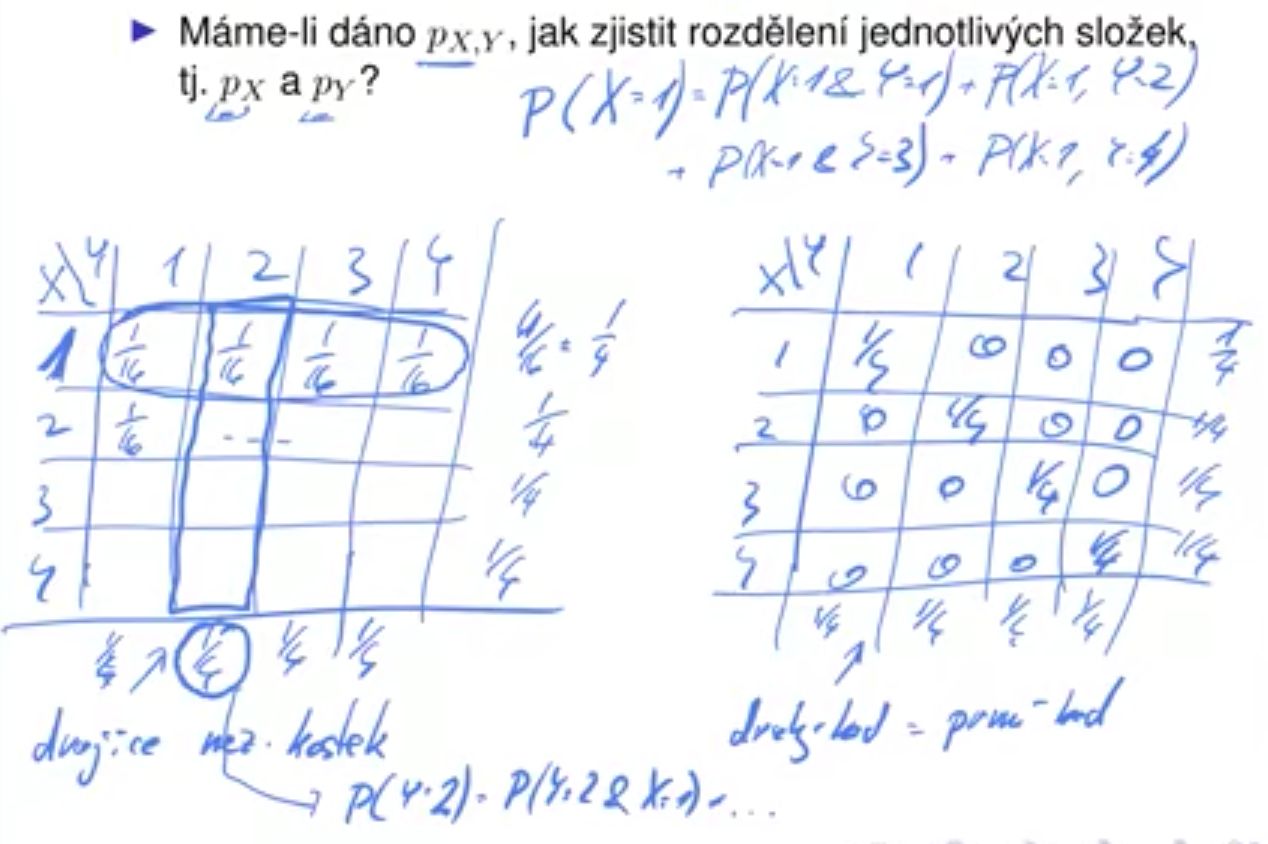 ► Máme-li dáno p_{X,Y}, jak zjistit rozdělení jednotlivých složek,
tj. p_X a p_Y?
P(X=1) = P(X=1 & Y=1) + P(X=1, Y=2)
+ P(X=1 & Y=3) + P(X=1, Y=4)
X\Y 1 2 3 4
1 1/16 1/16 1/16 1/16 4/16 = 1/4
2 1/16 --- 1/4
3 1/4
4 1/4
1/4 1/4 1/4 1/4
dvojice nez. kostek
P(Y=2) = P(Y=2 & X=1) + ...
X\Y 1 2 3 4
1 1/4 0 0 0 1/4
2 0 1/4 0 0 1/4
3 0 0 1/4 0 1/4
4 0 0 0 1/4 1/4
1/4 1/4 1/4 1/4
druhý hod = první hod